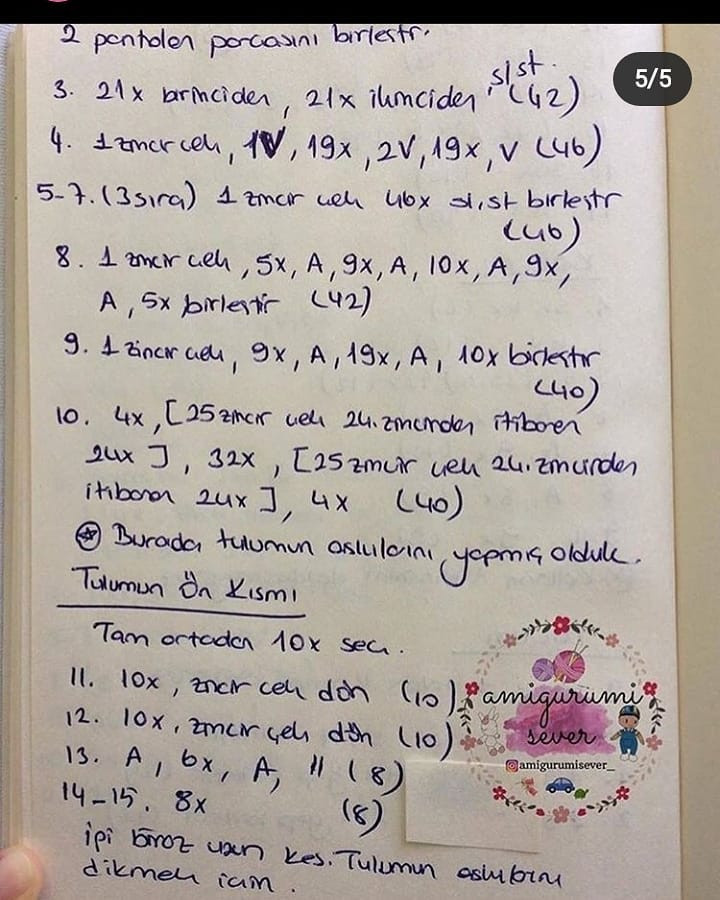 2 pantolon parçasını birleştr.
5/5
3. 21x birinciden, 21x ikinciden sl st. (42)
4. 1 zincir çek, 1V, 19x, 2V, 19x, V (46)
5-7. (3 sıra) 1 zincir çek 46x sl.st birleştr
(46)
8. 1 zincir çek, 5x, A, 9x, A, 10x, A, 9x,
A, 5x birleştir (42)
9. 1 zincir çek, 9x, A, 19x, A, 10x birleştir
(40)
10. 4x, [25 zincir çek 24. zincirden itibaren
24x], 32x, [25 zincir çek 24. zincirden
itibaren 24x], 4x (40)
Burada tulumun askılarını yapmış olduk.
Tulumun Ön Kısmı
Tam ortadan 10x seç.
11. 10x, zincir çek dön (10)
12. 10x, zincir çek dön (10)
13. A, 6x, A, " (8)
14-15. 8x (8)
ipi biraz uzun kes. Tulumun askılarını
dikmek için.
amigurumi
sever
@amigurumisever_